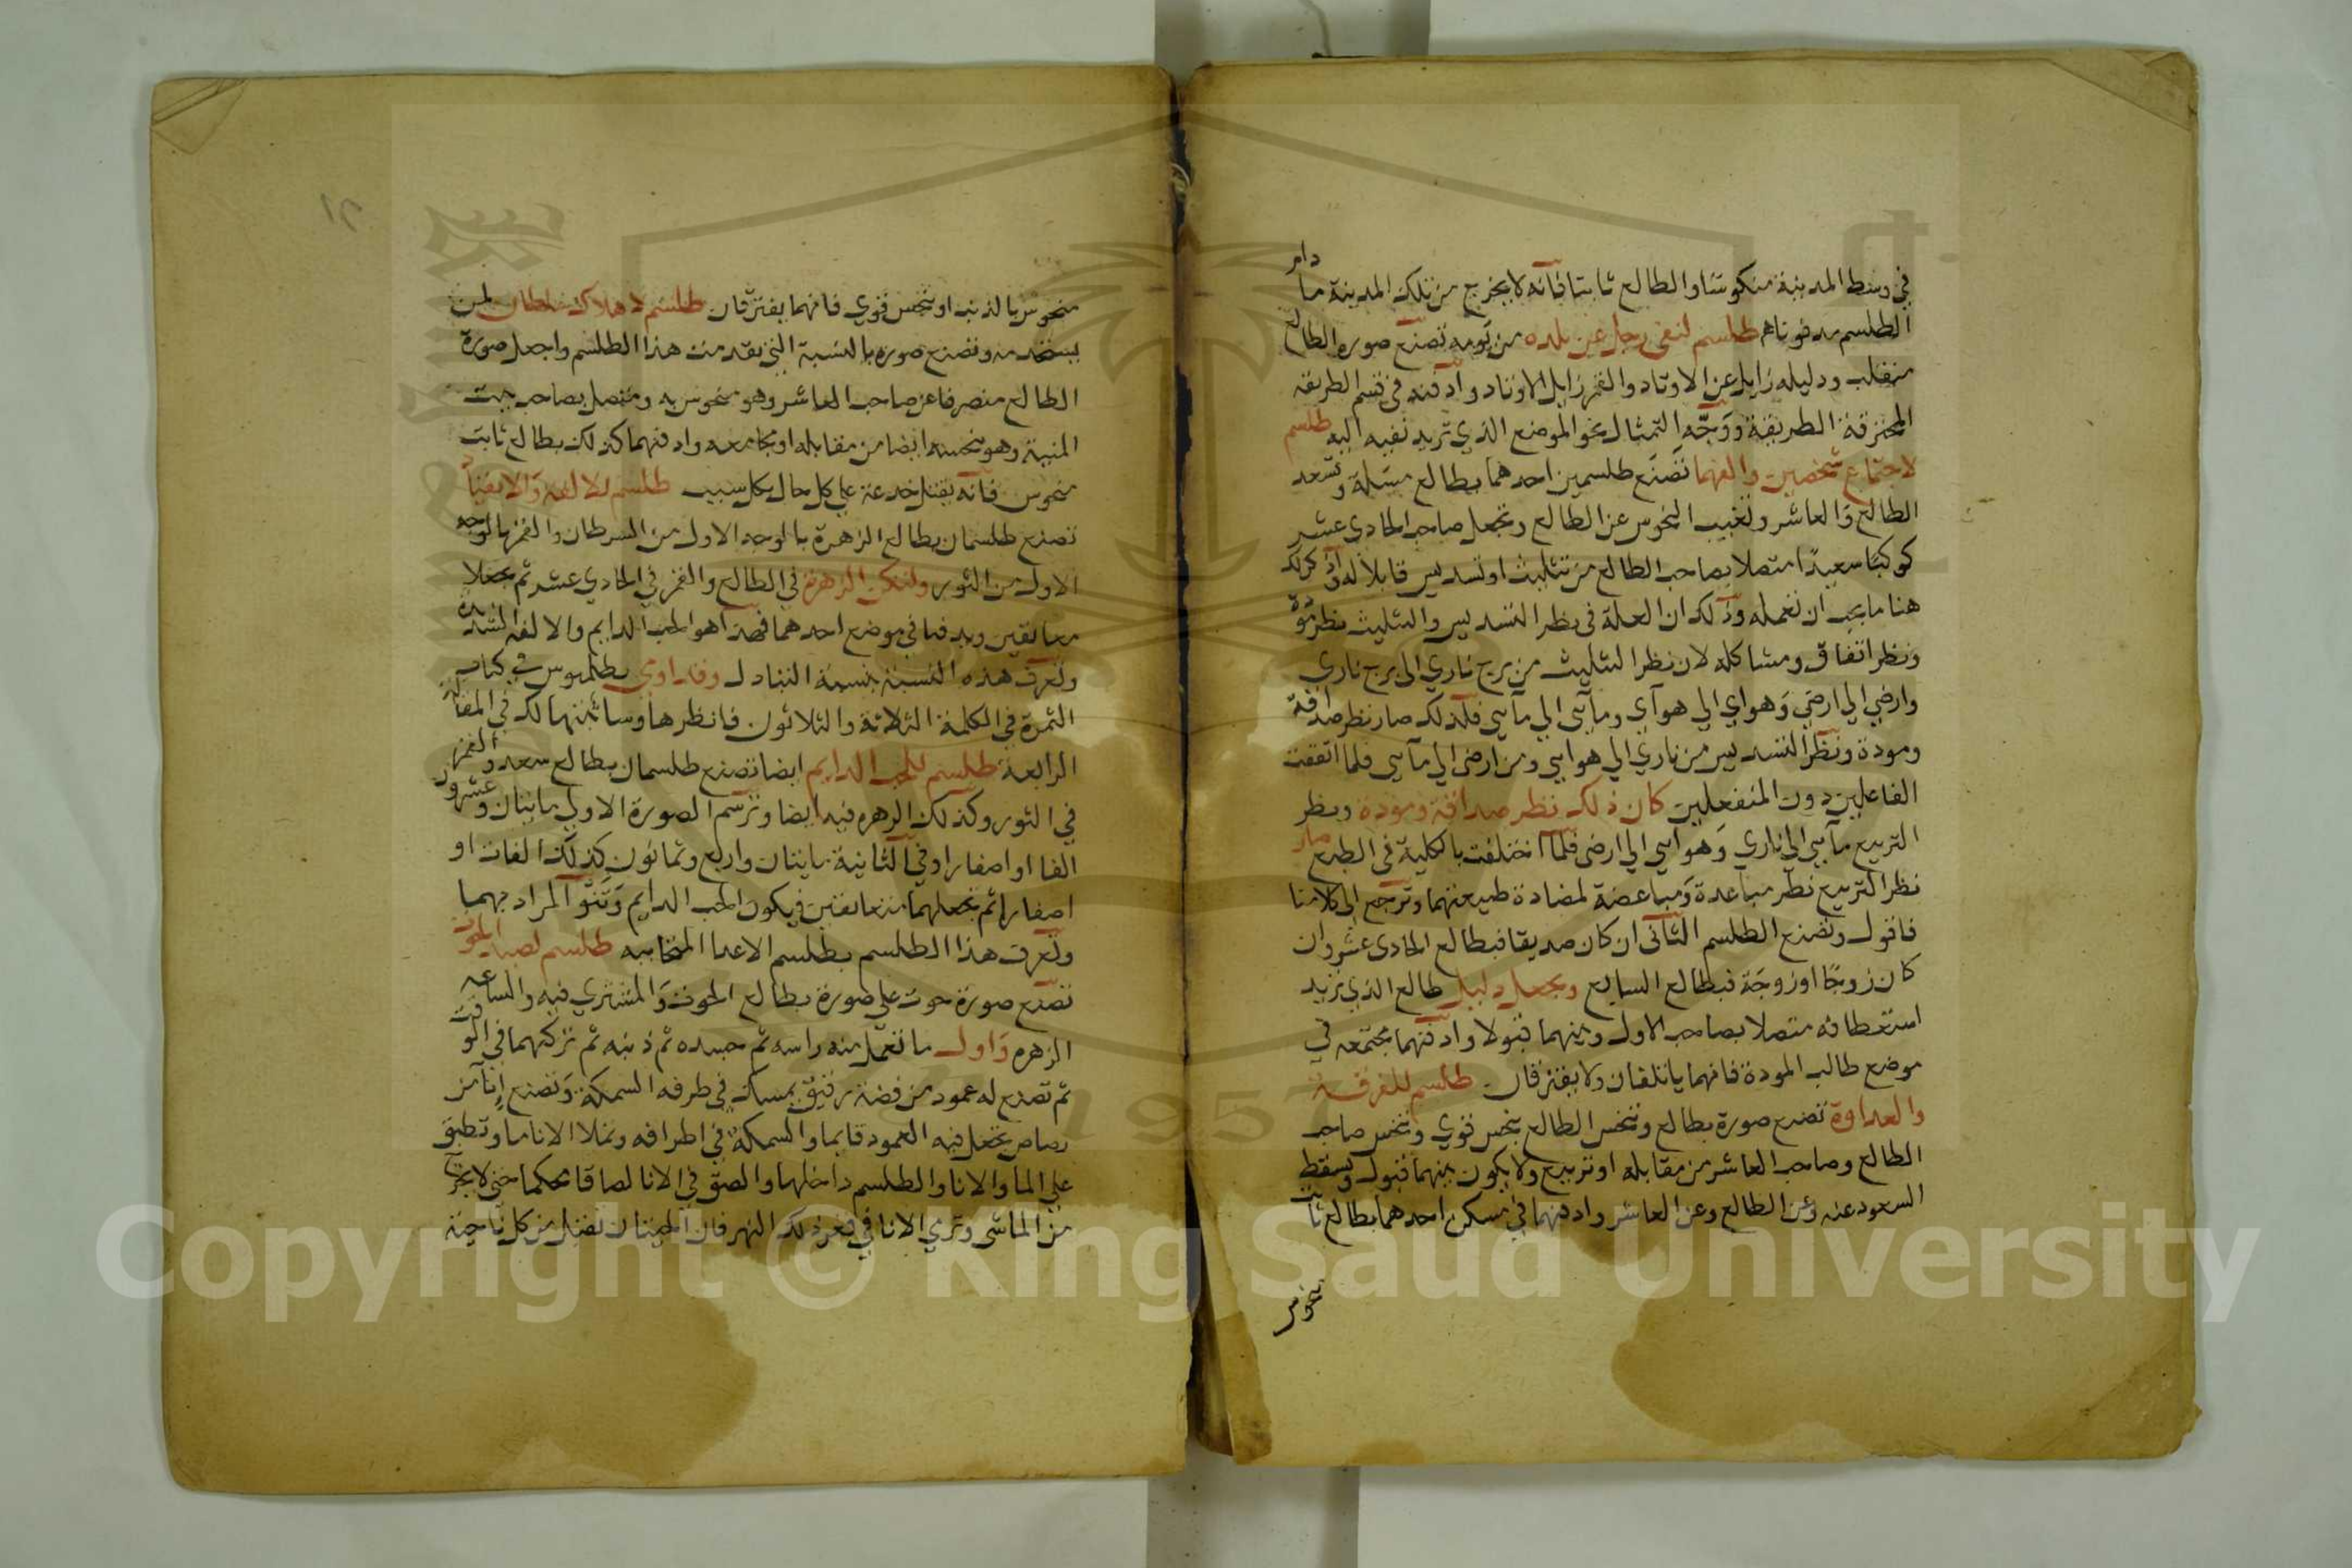 في وسط المدينة منكوسا والطالع ثابتا فانه لا يخرج من تلك المدينة ما دام
الطلسم مدفونا طلسم لنفي رجل عن بلده من يومه تصنع صوره الطالع
منقلب ودليله زايل عن الاوتاد والقمر زايل الاوتاد وادفنه في قسم الطريقه
المحترقة الطريقة ووجه التمثال نحو الموضع الذي تريد نفيه اليه طلسم
لاجتماع شخصين والفهما تصنع طلسمين احدهما بطالع مسلة وتسعد
الطالع والعاشر وتغيب النحوس عن الطالع وتجعل صاحب الحادي عشر
كوكبا سعيدا متصلا بصاحب الطالع من تثليث او تسديس قابلا له واذكر لك
هنا ما يجب ان نعمله وذلك ان العلة في نظر التسديس والتثليث نظر مودة
ونظر اتفاق ومشاكله لان نظر التثليث من برج ناري الى برج ناري
وارضي الي ارضي وهواي الي هوآي ومآئي الي مآئي فلذلك صار نظر صداقة
ومودة ونظر التسديس من ناري الي هوايي ومن ارضي الي مآئي فلما اتفقت
الفاعلين دون المنفعلين كان ذلك نظر صداقة ومودة ونظر
التربيع مآئي الي ناري وهوآيي الي ارضي فلما اختلفت بالكلية في الطبع صار
نظر التربيع نظر مباعدة ومباغضة لمضادة طبيعتهما ونرجع الي كلامنا
فاقول وتصنع الطلسم الثاني ان كان صديقا فبطالع الحادي عشر وان
كان زوجا او زوجة فبطالع السابع ويجعل دليل طالع الذي تريد
استعطافه متصلا بصاحب الاول وبينهما قبولا وادفنهما مجتمعه في
موضع طالب المودة فانهما ياتلفان ولا يفترقان طلسم للفرقة
والعداوة تصنع صورة بطالع وتنحس الطالع بنحس قوي وتنحس صاحب
الطالع وصاحب العاشر من مقابله او تربيع ولا يكون بينهما قبول وتسقط
السعود عنه وعن الطالع وعن العاشر وادفنهما في مسكن احدهما بطالع ثابت
منحوس
منحوس بالذنب او بنحس قوي فانهما يفترقان طلسم لاهلاك سلطان لمن
وتصنع صوره بالنسبة التي تقدمت هذا الطلسم واجعل صورة
الطالع منصرفا عن صاحب العاشر وهو منحوس به ومتصل بصاحب بيت
المنية وهو ينحسه ايضا من مقابله او مجامعه وادفنهما كذلك بطالع ثابت
منحوس فانه يقتل خدعة علي كل حال بكل سبب طلسم للالفه والاتفاق
تصنع طلسمان بطالع الزهرة بالوجه الاول من السرطان والقمر بالوجه
الاول من الثور ولتكن الزهرة في الطالع والقمر في الحادي عشر ثم يجعلا
معانقين ويدفنا في موضع احدهما فهذا هو الحب الدايم والالفه الشديدة
وتعرف هذه النسبة بنسبة التبادل وقد اوري بطلميوس في كتاب
الثمرة في الكلمة الثلاثة والثلاثون فانظرها وسابينها لك في المقالة
الرابعة طلسم للحب الدايم ايضا تصنع طلسمان بطالع سعد والقمر
في الثور وكذلك الزهره فيه ايضا وترسم الصورة الاولي مايتان وعشرون
الفا او اصفارا وفي الثانية مايتان واربع وثمانون كذلك الفات او
اصفارا ثم تجعلهما متعانقين فيكون الحب الدايم وتنو المراد بهما
وتعرف هذا الطلسم بطلسم الاعدا المتحابه طلسم لصيد الحوت
تصنع صورة حوت علي صورة بطالع الحوت والمشتري فيه والساعه
الزهره واول ما تعمل منه راسه ثم جسده ثم ذنبه ثم تركبهما في الوقت
ثم تصنع له عمود من فضة رقيق يمسك في طرفه السمكة وتصنع اناء من
رصاص تجعل فيه العمود قايما والسمكة في اطرافه وتملا الاناء ما وتطبق
علي الما والانا والطلسم داخلها والصق في الانا لصاقا محكما حتي لا يخرج
من الما شي وترمي الانا في قعر ذلك النهر فان الحيتان تصل من كل ناحية
Copyright © King Saud University
1957